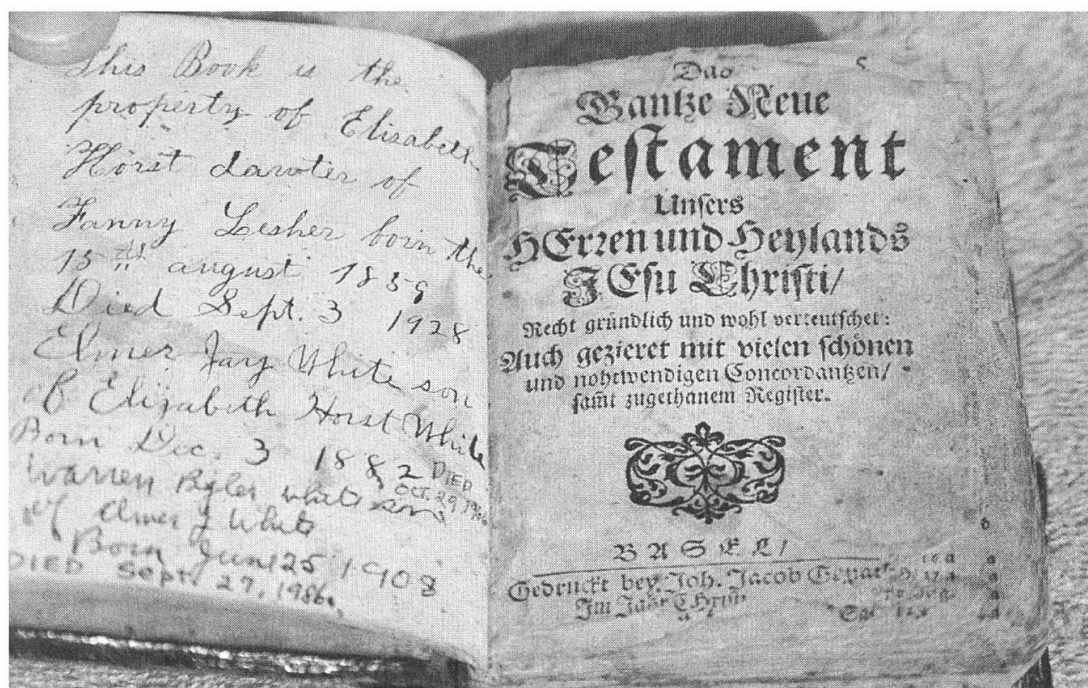 This Book is the
property of Elisabeth
Horst dawter of
Fanny Lesher born the
15th august 1859
Died Sept. 3 1928
Elmer Jay White son
of Elizabeth Horst White
Born Dec. 3 1882 DIED
OCT. 29, 19
Warren white son
of Elmer J White
Born Jun 25 1908
DIED Sept 27, 1986.
Das
Gantze Neue
Testament
Unsers
HErren und Heylands
JEsu Christi/
Recht gründlich und wohl verteutschet:
Auch gezieret mit vielen schönen
und nohtwendigen Concordantzen/
samt zugethanem Register.
BASEL/
Gedruckt bey Joh. Jacob
Im Jahr Christi